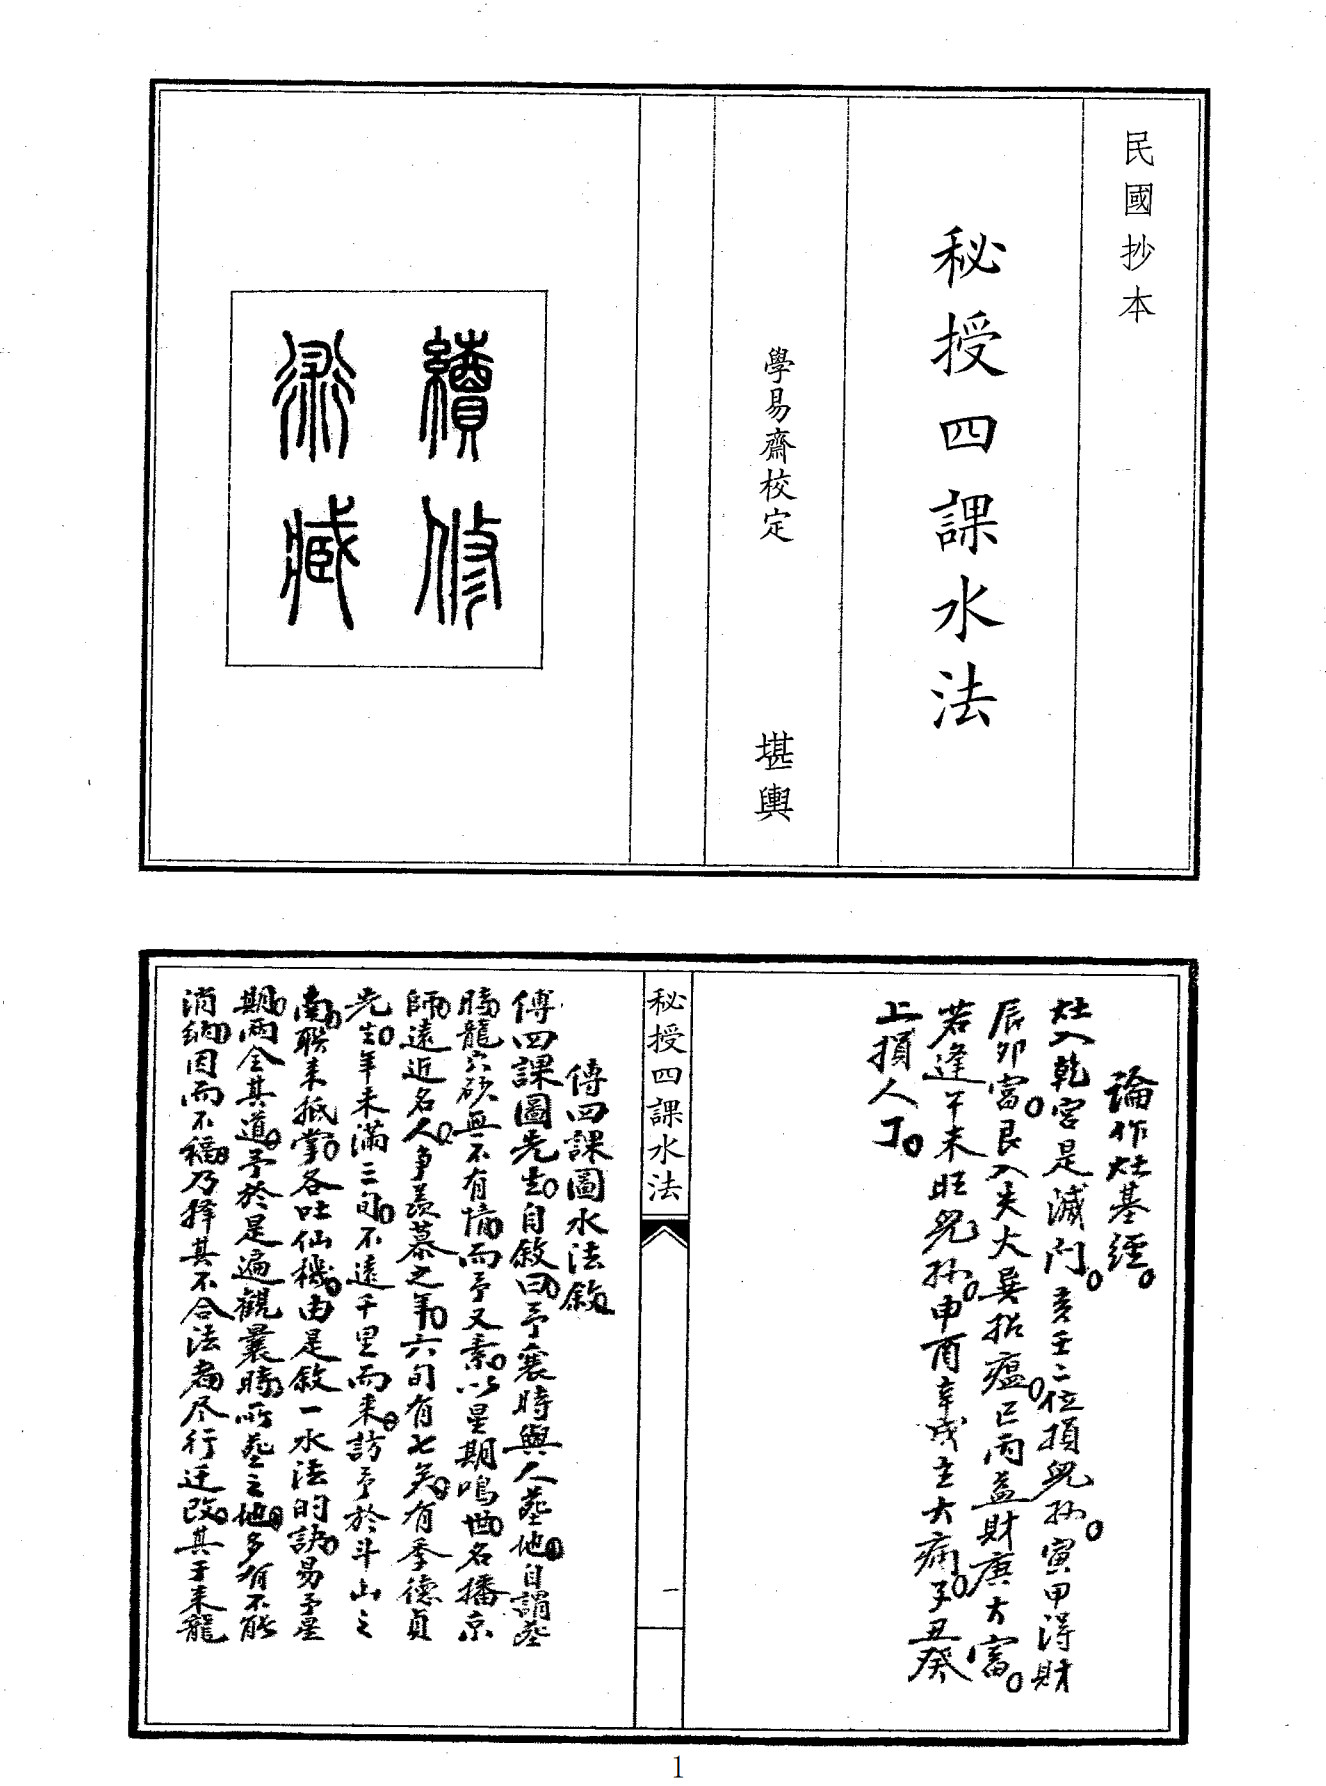 民國抄本
秘授四課水法
學易齋校定 堪輿
續修
術藏
論作灶基經。
灶入乾宮是滅門。亥壬二位損兒孫。寅甲得財
辰卯富。艮入失火巽招瘟。巳丙益財庚大富。
若逢午未旺兒孫。申酉辛戌主大病。子丑癸
上損人丁。
秘授四課水法
一
傳四課圖水法敘
傳四課圖先生。自敘曰。予襄時與人葬地。自謂葬
時龍穴砂無不有情。而予又素。以星期鳴世。名播京
師。遠近名人。爭羨慕之。年六旬有七矣。有季德貞
先生。年未滿三旬。不遠千里而來。訪予於斗山之
南。聯未抵掌。各吐仙機。由是敘一水法的訣。易予星
期。兩全其道。予於是遍觀曩時。所葬之地。多有不能
消納。因而不福。乃擇其不合法者。尽行迁改。其于来龍
1